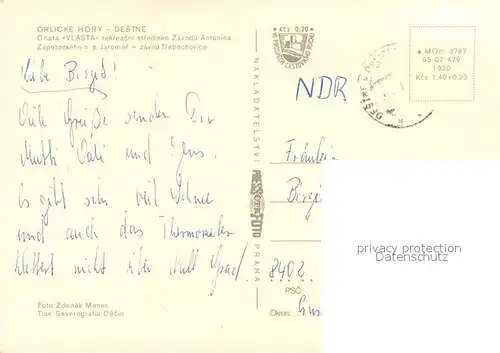 ORLICKÉ HORY – DEŠTNÉ
Chata «VLASTA» rekreační středisko Závodů Antonína
Zápotockého n. p. Jaroměř – závod Třebechovice
Kčs 0,20
VE PROSPĚCH CESTOVNÍHO RUCHU
MOm 3767
05-07-479
1930
Kčs 1,40+0,20
DEŠTNÉ
NDR
Liebe Birgit!
Viele Grüße senden Dir
Mutti, Vati und Jens.
Es gibt sehr viel Schnee
und auch das Thermometer
klettert nicht über Null Grad.
NAKLADATELSTVÍ
PRESSFOTO
PRAHA
Fräulein
Birgi
privacy protection
Datenschutz
8402
PSČ
Okres:
Foto Zdeněk Menec
Tisk Severografia Děčín